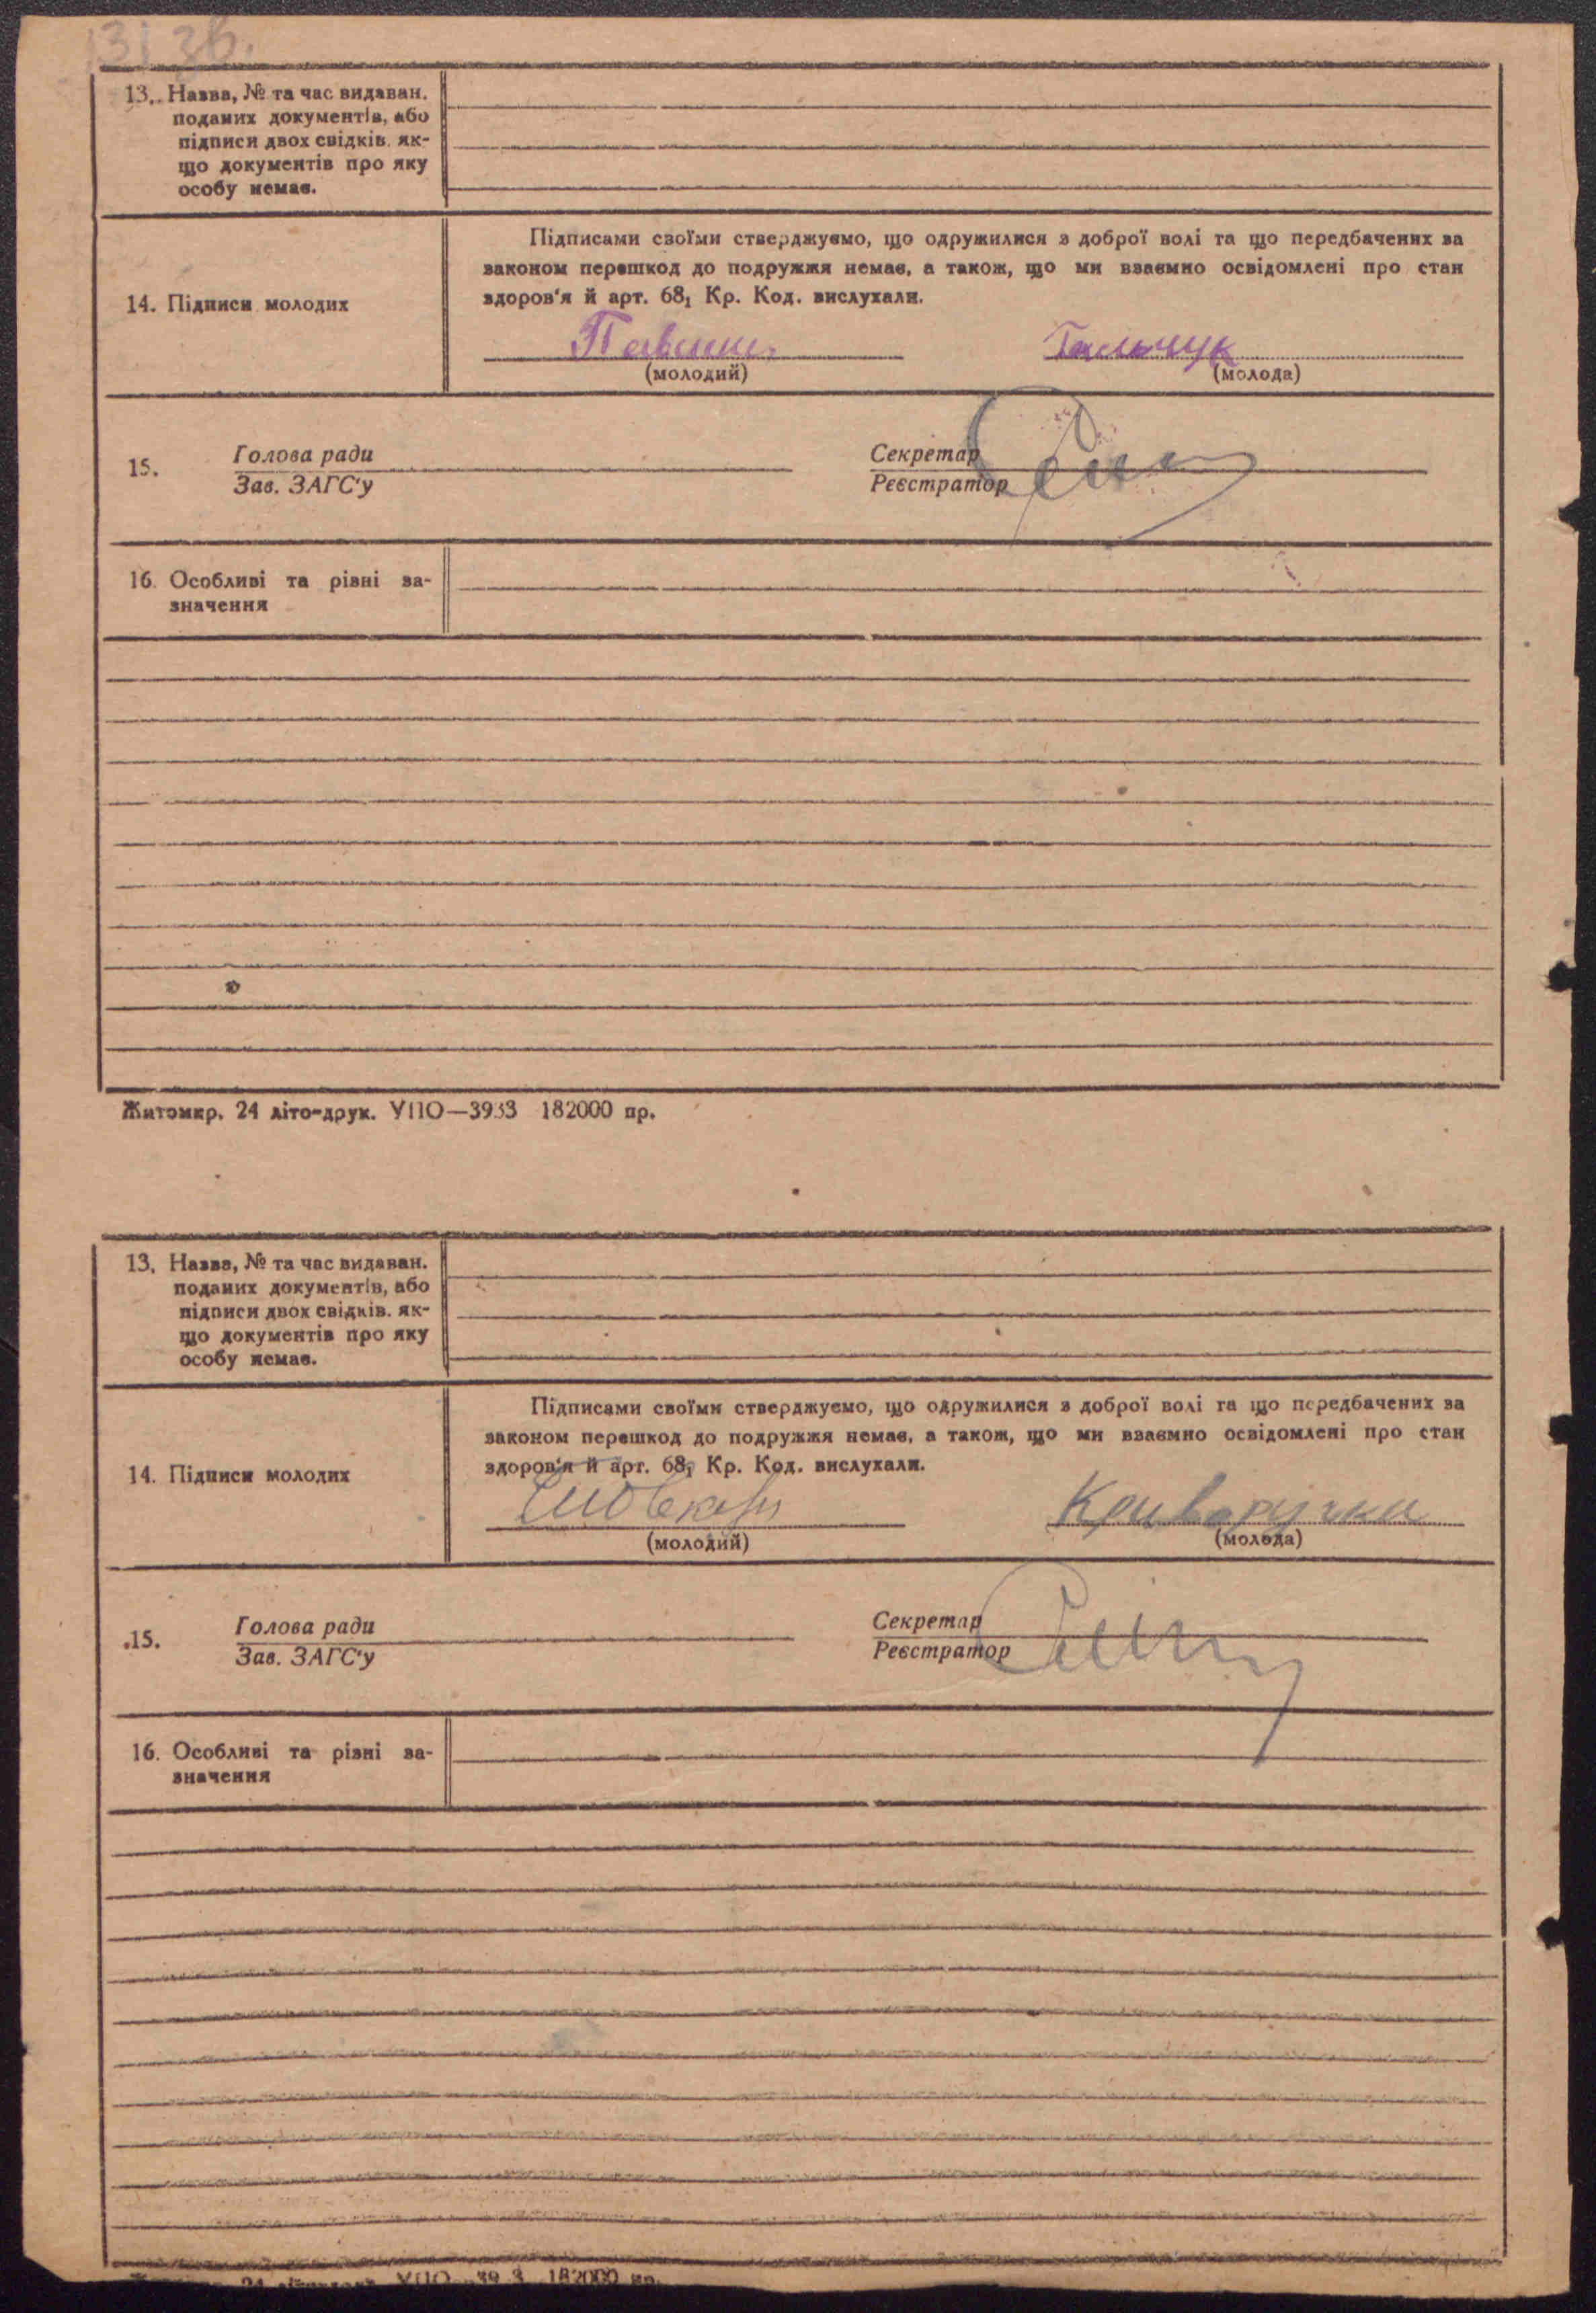 13. Назва, № та час видаван.
поданих документів, або
підписи двох свідків. як-
що документів про яку
особу немає.
Підписами своїми стверджуємо, що одружилися з доброї волі та що передбачених за
законом перешкод до подружжя немає, а також, що ми взаємно освідомлені про стан
здоров'я й арт. 68₁ Кр. Код. вислухали.
14. Підписи молодих
Гальчук
(молодий) (молода)
15. Голова ради Секретар
Зав. ЗАГС'у Реєстратор
16. Особливі та різні за-
значення
Житомир. 24 літо-друк. УПО—3933 182000 пр.
13. Назва, № та час видаван.
поданих документів, або
підписи двох свідків. як-
що документів про яку
особу немає.
Підписами своїми стверджуємо, що одружилися з доброї волі та що передбачених за
законом перешкод до подружжя немає, а також, що ми взаємно освідомлені про стан
здоров'я й арт. 68₁ Кр. Код. вислухали.
14. Підписи молодих
Криворучка
(молодий) (молода)
15. Голова ради Секретар
Зав. ЗАГС'у Реєстратор
16. Особливі та різні за-
значення
УПО 182000 пр.